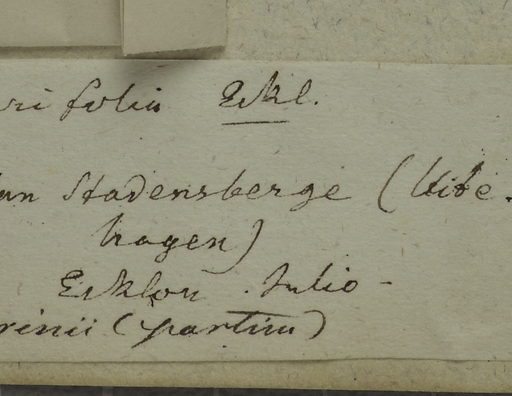 rifolia Eckl.
van Stadensberge (Uite-
hagen)
Ecklon. Julio -
rinii (partim)